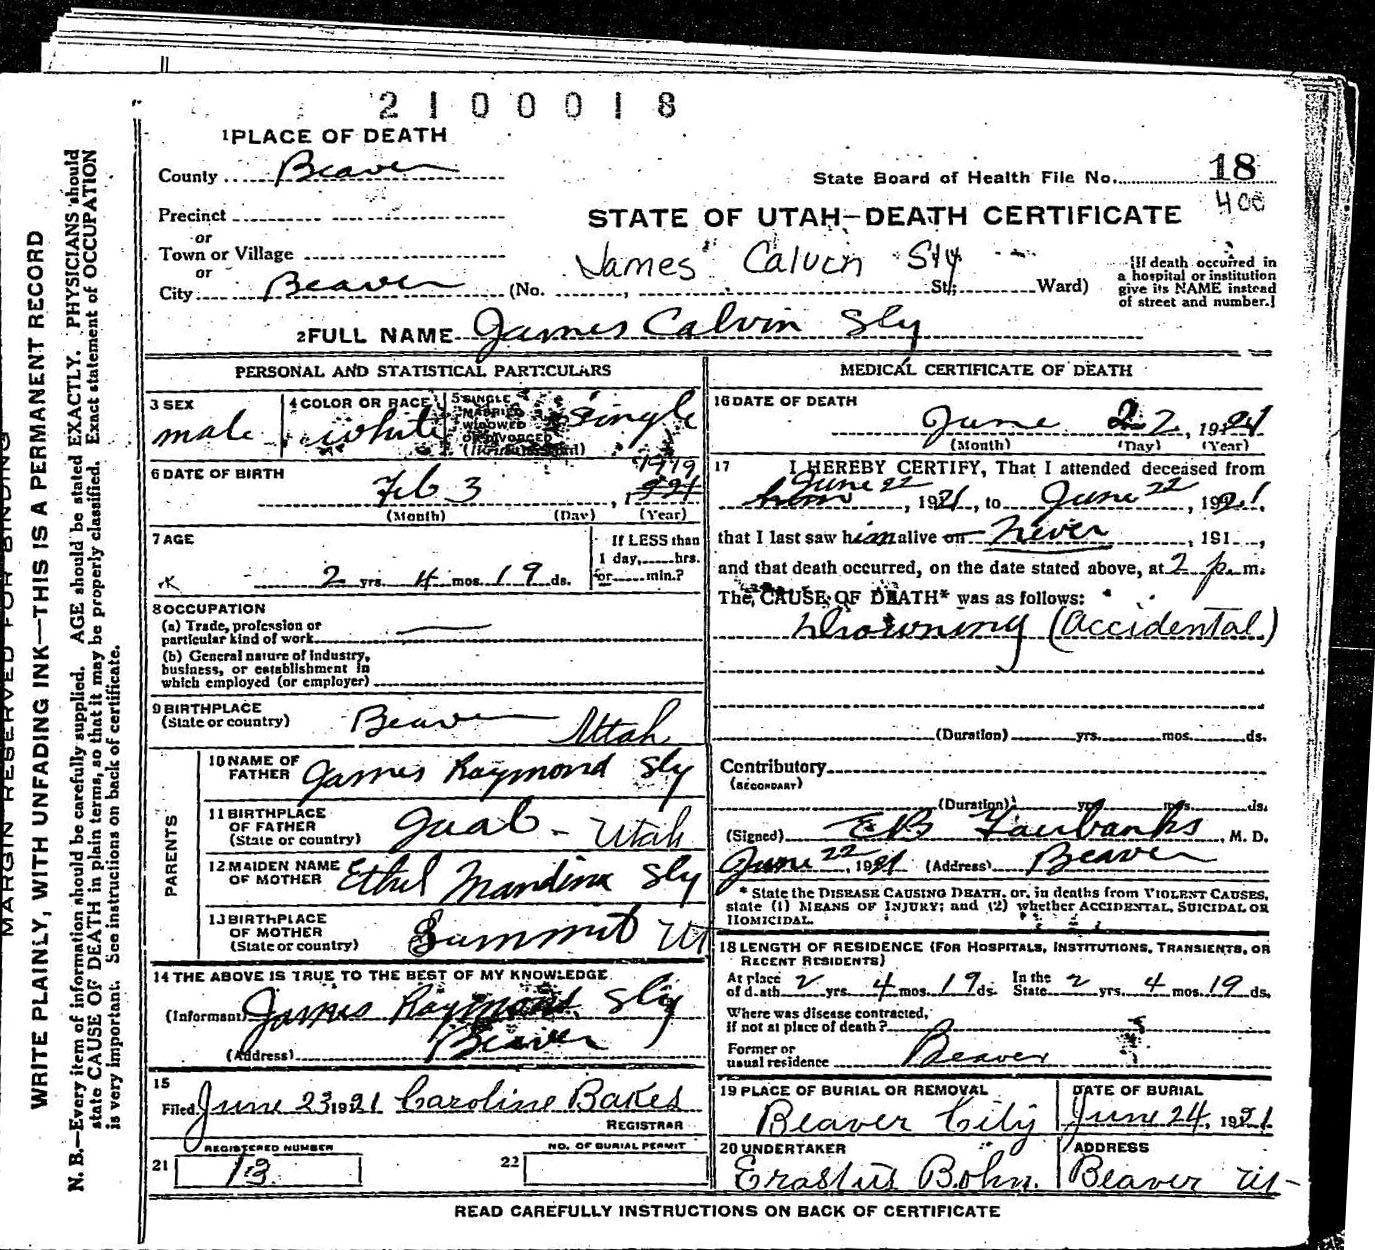 2100018
1 PLACE OF DEATH
County Beaver
State Board of Health File No. 18
400
Precinct
or
STATE OF UTAH—DEATH CERTIFICATE
Town or Village
or
James Calvin Sly
City Beaver (No. , St; Ward)
[If death occurred in
a hospital or institution
give its NAME instead
of street and number.]
2 FULL NAME James Calvin Sly
PERSONAL AND STATISTICAL PARTICULARS
3 SEX male
4 COLOR OR RACE white
5 SINGLE
MARRIED
WIDOWED
OR DIVORCED
single
6 DATE OF BIRTH
Feb 3 , 1919
(Month) (Day) (Year)
7 AGE
2 yrs. 4 mos. 19 ds.
If LESS than
1 day, hrs.
or min.?
8 OCCUPATION
(a) Trade, profession or
particular kind of work
(b) General nature of industry,
business, or establishment in
which employed (or employer)
9 BIRTHPLACE
(State or country) Beaver Utah
PARENTS
10 NAME OF
FATHER James Raymond Sly
11 BIRTHPLACE
OF FATHER
(State or country) Juab - Utah
12 MAIDEN NAME
OF MOTHER Ethel Mandina Sly
13 BIRTHPLACE
OF MOTHER
(State or country) Summit Ut
14 THE ABOVE IS TRUE TO THE BEST OF MY KNOWLEDGE
(Informant) James Raymond Sly
(Address) Beaver
15
Filed June 23 1921 Caroline Bakes
REGISTRAR
REGISTERED NUMBER
21 13
NO. OF BURIAL PERMIT
22
MEDICAL CERTIFICATE OF DEATH
16 DATE OF DEATH
June 22, 1921
(Month) (Day) (Year)
17 I HEREBY CERTIFY, That I attended deceased from
June 22, 1921, to June 22, 1921,
that I last saw him alive on never, 191 ,
and that death occurred, on the date stated above, at 2 p.m.
The CAUSE OF DEATH* was as follows:
Drowning (Accidental)
(Duration) yrs. mos. ds.
Contributory
(SECONDARY)
(Duration) yrs. mos. ds.
(Signed) E B Fairbanks, M. D.
June 22, 1921 (Address) Beaver
* State the DISEASE CAUSING DEATH, or, in deaths from VIOLENT CAUSES,
state (1) MEANS OF INJURY; and (2) whether ACCIDENTAL, SUICIDAL OR
HOMICIDAL.
18 LENGTH OF RESIDENCE (FOR HOSPITALS, INSTITUTIONS, TRANSIENTS, OR
RECENT RESIDENTS)
At place
of death 2 yrs. 4 mos. 19 ds.
In the
State 2 yrs. 4 mos. 19 ds.
Where was disease contracted,
if not at place of death?
Former or
usual residence Beaver
19 PLACE OF BURIAL OR REMOVAL
Beaver City
DATE OF BURIAL
June 24, 1921
20 UNDERTAKER
Erastus Bohn.
ADDRESS
Beaver Ut-
READ CAREFULLY INSTRUCTIONS ON BACK OF CERTIFICATE
MARGIN RESERVED FOR BINDING
WRITE PLAINLY, WITH UNFADING INK—THIS IS A PERMANENT RECORD
N. B.—Every item of information should be carefully supplied. AGE should be stated EXACTLY. PHYSICIANS should
state CAUSE OF DEATH in plain terms, so that it may be properly classified. Exact statement of OCCUPATION
is very important. See instructions on back of certificate.